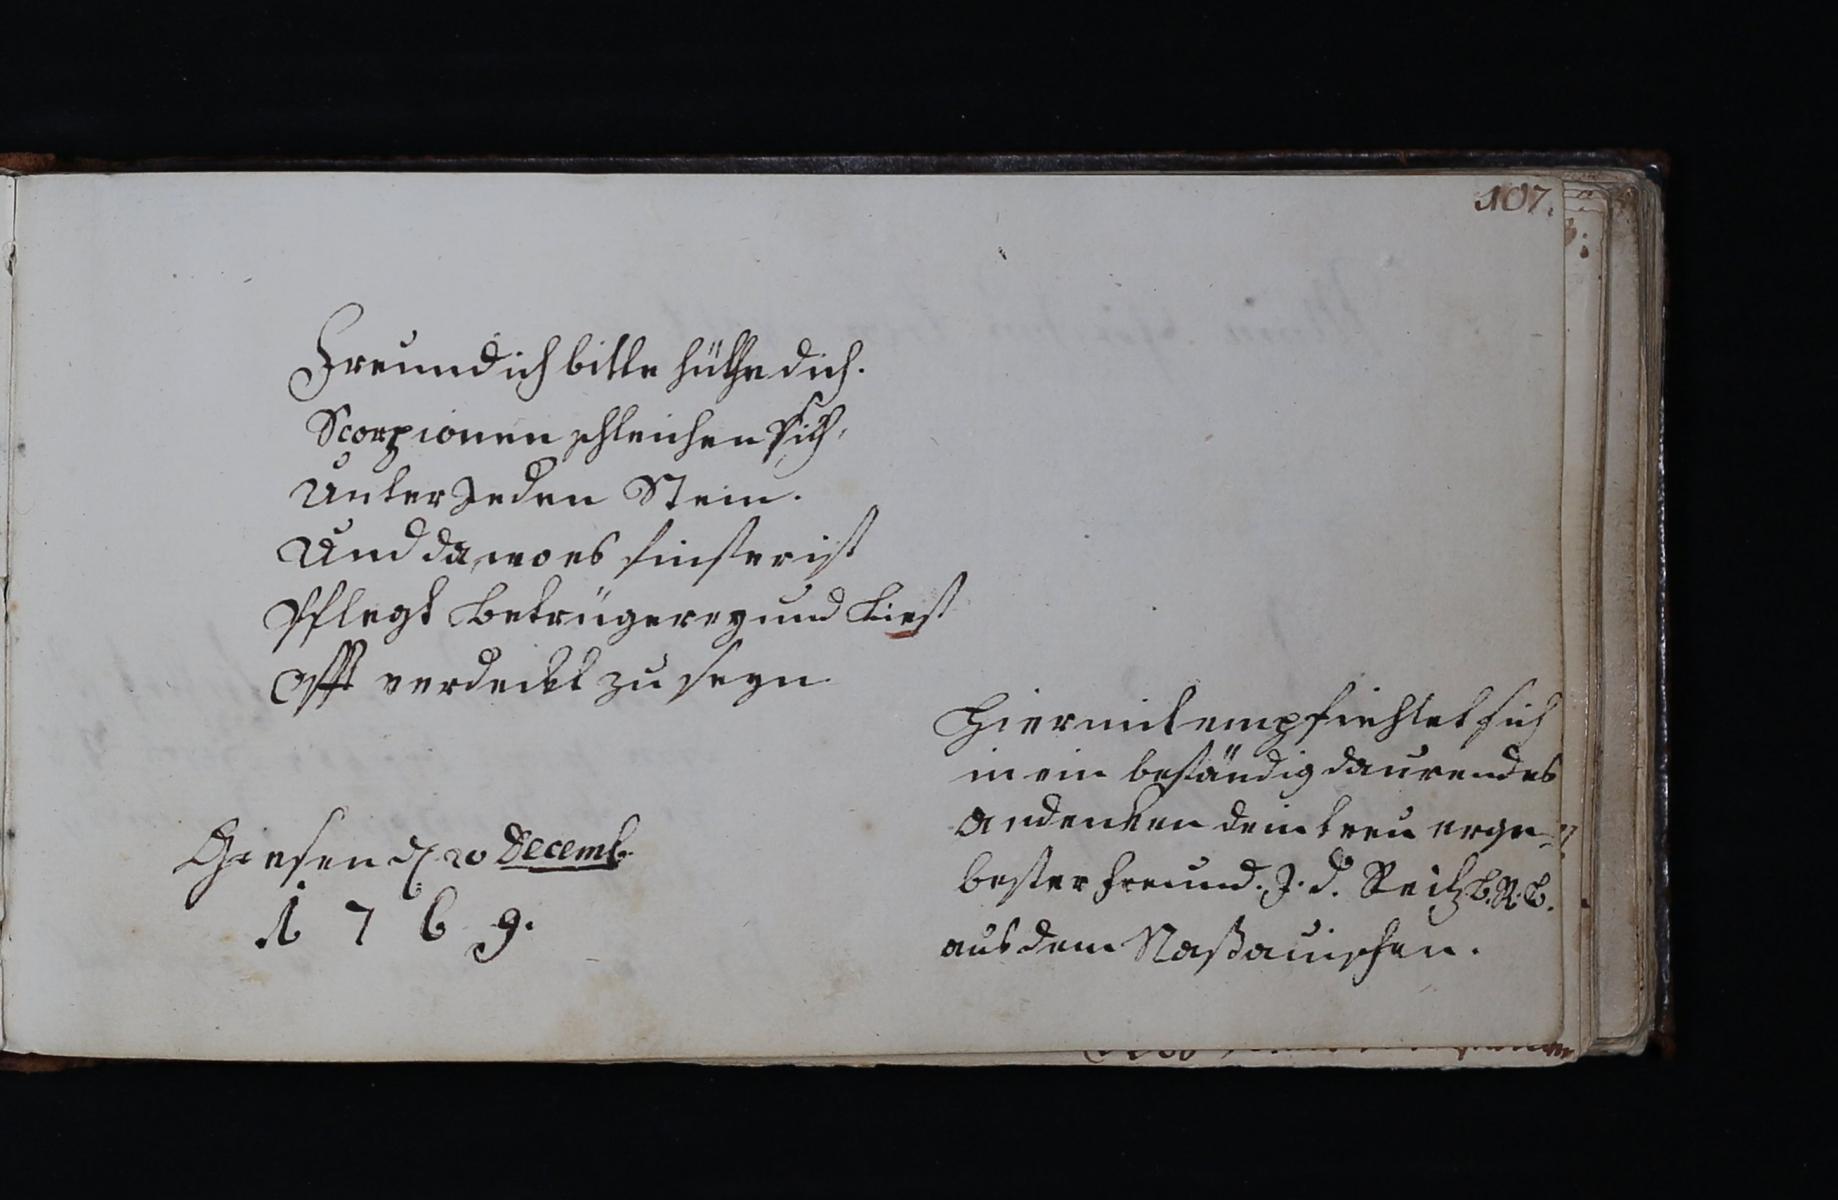 107.
Freund ich bitte hüthe dich.
Scorpionen schleichen sich,
Unter Jeden Stein.
Und da, wo es finster ist
Pflegt Betrügerey und List
Offt verdeckt zu seyn
Giesen d 20 Decemb.
1769.
Hiermit empfiehlet sich
in ein beständig daurendes
Andencken dein treu erge-
bester Freund. J. d. Reitz
aus dem Naßauischen.